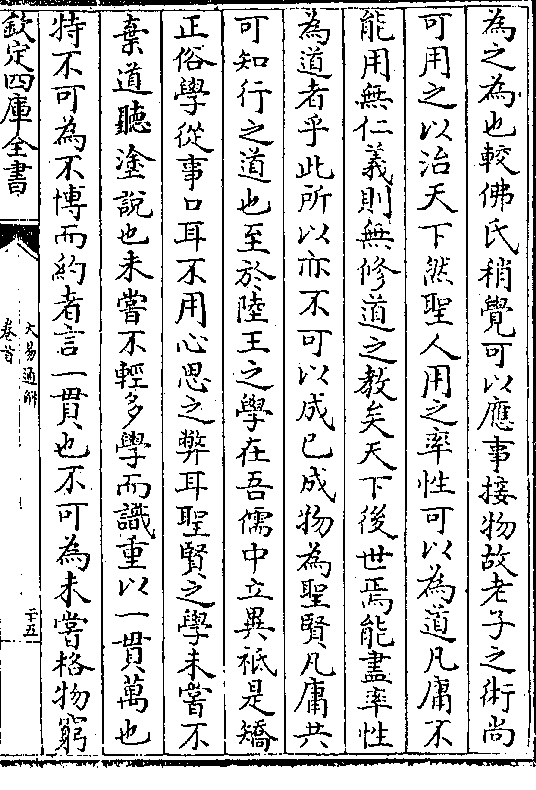 為之為也較佛氏稍覺可以應事接物故老子之術尚
可用之以治天下然聖人用之率性可以為道凡庸不
能用無仁義則無修道之教矣天下後世焉能盡率性
為道者乎此所以亦不可以成已成物為聖賢凡庸共
可知行之道也至於陸王之學在吾儒中立異祗是矯
正俗學從事口耳不用心思之弊耳聖賢之學未嘗不
棄道聽塗說也未嘗不輕多學而識重以一貫萬也
特不可為不博而約者言一貫也不可為未嘗格物窮
欽定四庫全書
大易通解
卷首
二十五